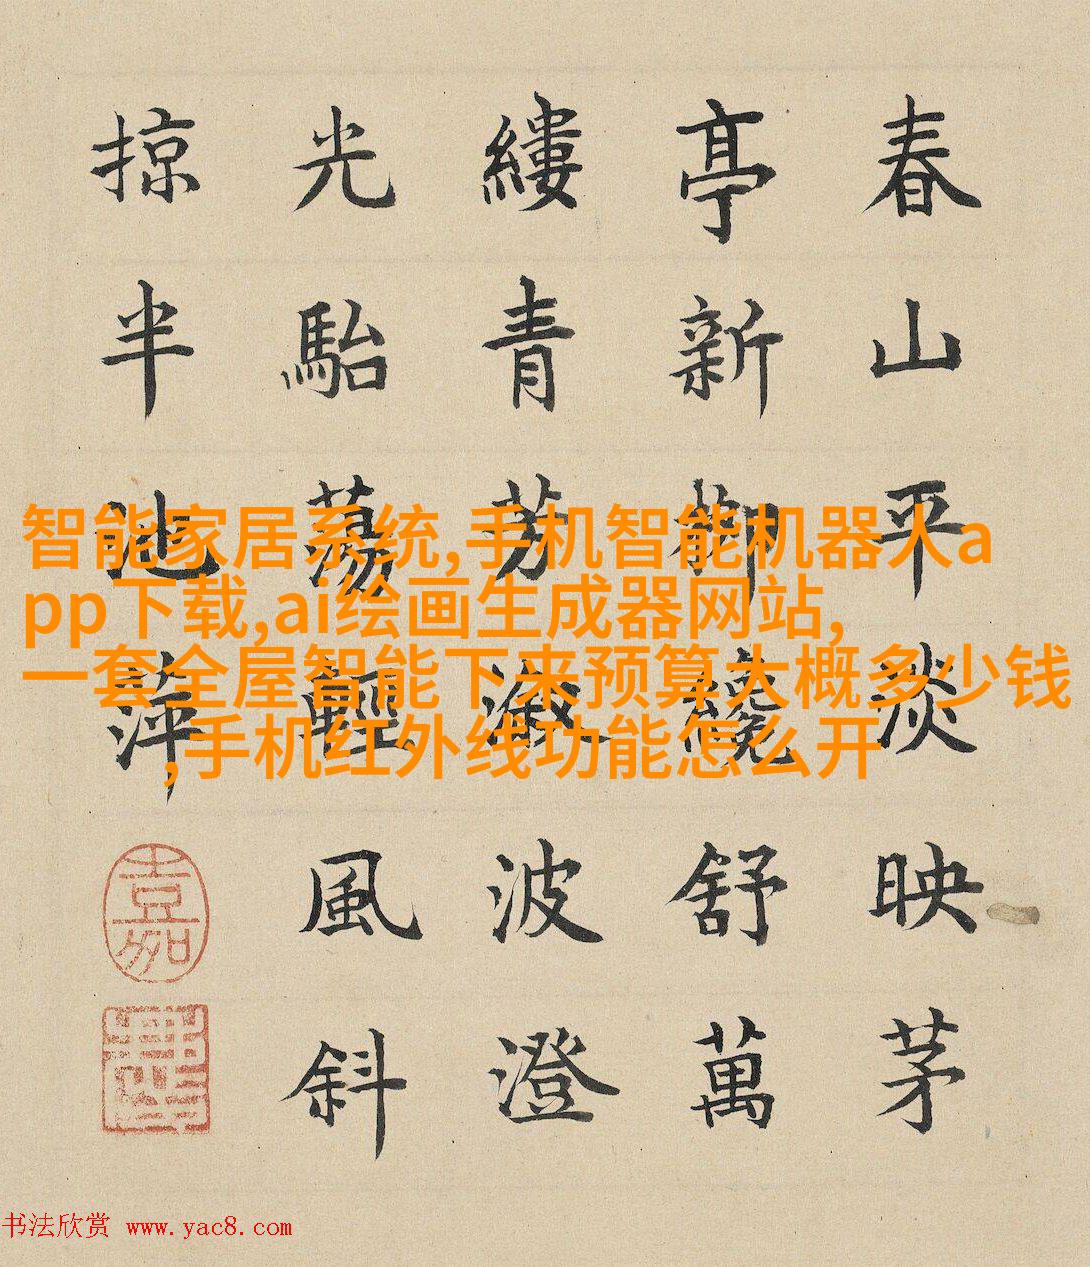 春山平淡映茅
亭新柳纔舒萬
縷青芳波澄
光駘蕩輕風斜
掠半池萍
嘉
智能家居系统,手机智能机器人a
pp下载,ai绘画生成器网站,
一套全屋智能下来预算大概多少钱
,手机红外线功能怎么开
书法欣赏 www.yac8.com